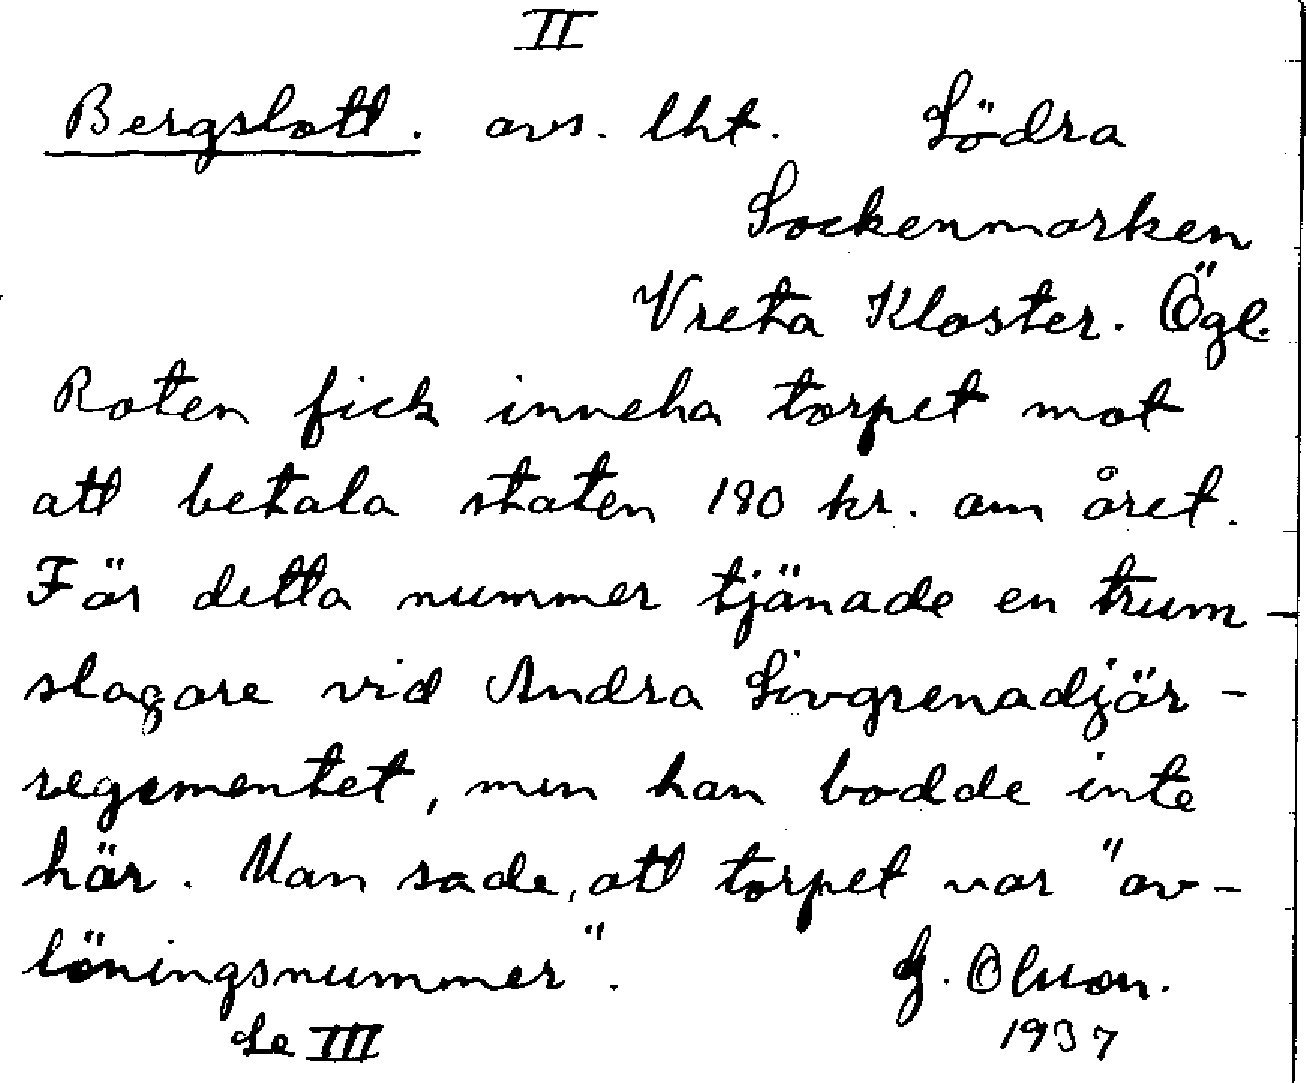 II
Bergslott. avs. lht. Södra
Sockenmarken
Vreta Kloster. Ögl.
Roten fick inneha torpet mot
att betala staten 180 kr. om året.
För detta nummer tjänade en trum-
slagare vid Andra Livgrenadjär-
regementet, men han bodde inte
här. Man sade, att torpet var "av-
löningsnummer".
G. Olsson.
Se III
1937